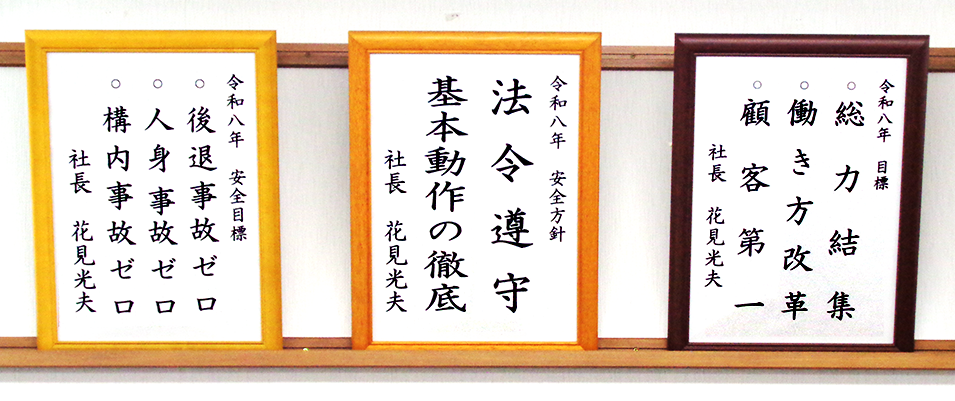 令和八年 安全目標
○後退事故ゼロ
○人身事故ゼロ
○構内事故ゼロ
社長 花見光夫
令和八年 安全方針
法令遵守
基本動作の徹底
社長 花見光夫
令和八年 目標
○総力結集
○働き方改革
○顧客第一
社長 花見光夫